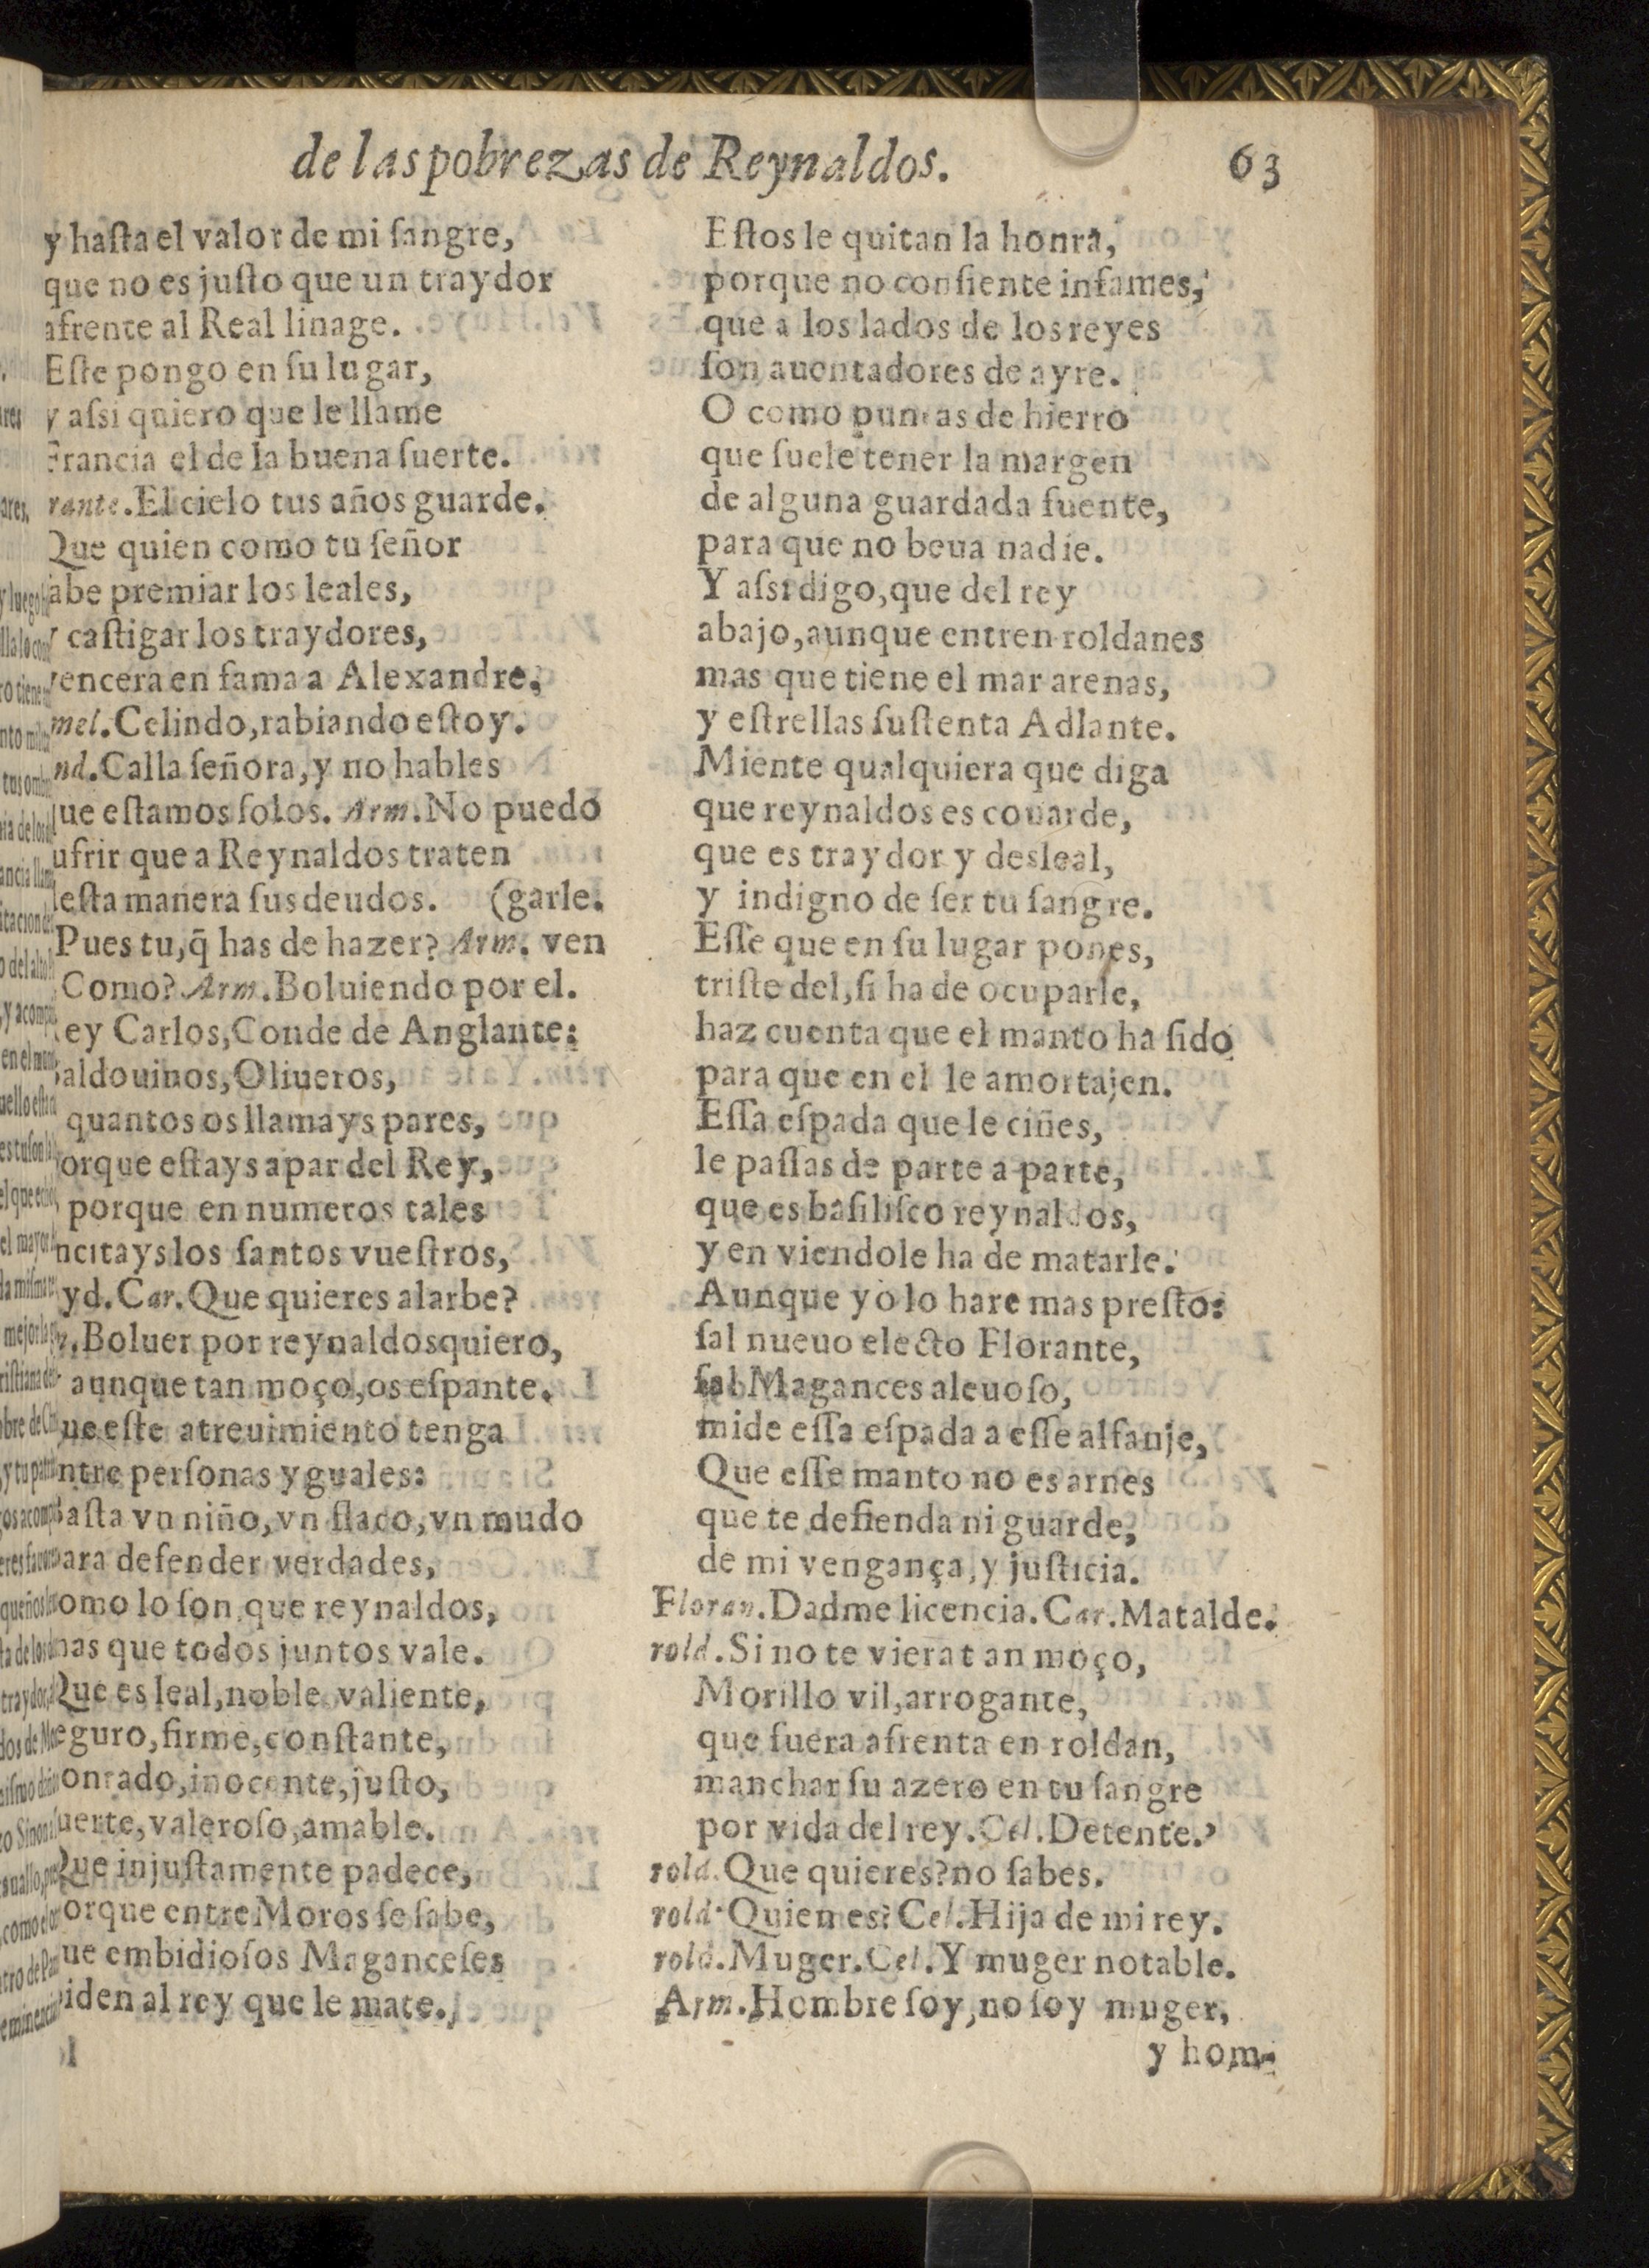 de las pobrezas de Reynaldos. 63
y haſta el valor de mi ſangre,
que no es juſto que un traydor
afrente al Real linage.
Eſte pongo en ſu lugar,
y aſsi quiero que le llame
Francia el de la buena ſuerte.
rante. El cielo tus años guarde.
Que quien como tu ſeñor
abe premiar los leales,
y caſtigar los traydores,
vencera en fama a Alexandre.
mel. Celindo, rabiando eſtoy.
nd. Calla ſeñora, y no hables
que eſtamos ſolos. Arm. No puedo
ufrir que a Reynaldos traten
deſta manera ſus deudos. (garle.
Pues tu, q̃ has de hazer? Arm. ven
Como? Arm. Boluiendo por el.
ey Carlos, Conde de Anglante:
aldouinos, Oliueros,
quantos os llamays pares,
orque eſtays a par del Rey,
porque en numeros tales
ncitays los ſantos vueſtros,
yd. Car. Que quieres alarbe?
Boluer por reynaldos quiero,
aunque tan moço, os eſpante.
ue eſte atreuimiento tenga
ntre perſonas yguales:
aſta vn niño, vn flaco, vn mudo
ara defender verdades,
omo lo ſon, que reynaldos,
mas que todos juntos vale.
Que es leal, noble valiente,
eguro, firme, conſtante,
onrado, inocente, juſto,
uerte, valeroſo, amable.
Que injuſtamente padece,
orque entre Moros ſe ſabe,
ue embidioſos Maganceſes
iden al rey que le mate.
Eſtos le quitan la honra,
porque no conſiente infames,
que a los lados de los reyes
ſon auentadores de ayre.
O como puntas de hierro
que ſuele tener la margen
de alguna guardada fuente,
para que no beua nadie.
Y aſsi digo, que del rey
abajo, aunque entren roldanes
mas que tiene el mar arenas,
y eſtrellas ſuſtenta Adlante.
Miente qualquiera que diga
que reynaldos es couarde,
que es traydor y desleal,
y indigno de ſer tu ſangre.
Eſſe que en ſu lugar pones,
triſte del, ſi ha de ocuparle,
haz cuenta que el manto ha ſido
para que en el le amortajen.
Eſſa eſpada que le ciñes,
le paſſas de parte a parte,
que es baſiliſco reynaldos,
y en viendole ha de matarle.
Aunque yo lo hare mas preſto:
ſal nueuo electo Florante,
ſal Magances aleuoſo,
mide eſſa eſpada a eſſe alfanje,
Que eſſe manto no es arnes
que te defienda ni guarde,
de mi vengança, y juſticia.
Floran. Dadme licencia. Car. Matalde.
rold. Si no te viera tan moço,
Morillo vil, arrogante,
que fuera afrenta en roldan,
manchar ſu azero en tu ſangre
por vida del rey. Cel. Detente.
rold. Que quieres? no ſabes.
rold. Quien es? Cel. Hija de mi rey.
rold. Muger. Cel. Y muger notable.
Arm. Hombre ſoy, no ſoy muger,
y hom-